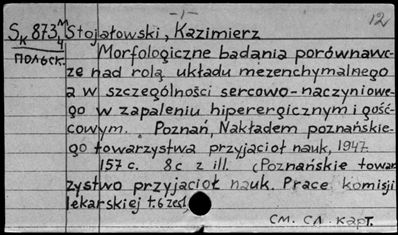 -1-
12
Sк 873/4 м Stojałowski, Kazimierz
польск.
Morfologiczne badania porównaw-
cze nad rolą układu mezenchymalnego
a w szczególności sercowo-naczyniowe-
go w zapaleniu hiperergicznym i gość-
cowym. Poznań, Nakładem poznańskie-
go towarzystwa przyjacioł nauk, 1947
157 с. 8c z ill. (Poznańskie towar
zystwo przyjacioł nauk. Prace komisji
lekarskiej t.6 zes1
см. сл. карт.